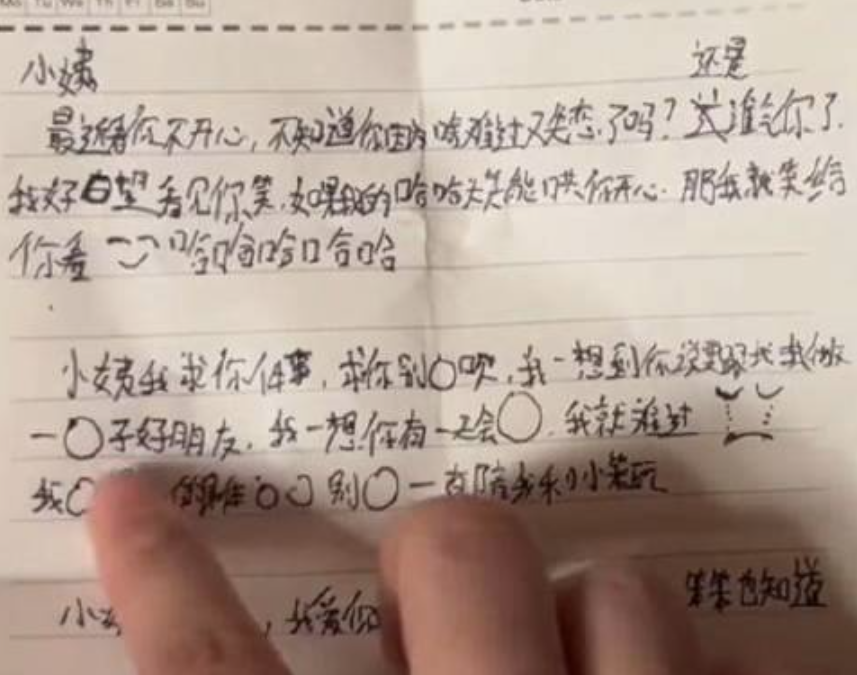 Mo Tu We Th Fr Sa Su
小姨 还是
最近看你不开心，不知道你因为啥难过又失恋了吗？谁气你了.
我好日望看见你笑.如果我的哈哈大笑能哄你开心.那我就笑给
你看 哈哈哈哈哈
小姨我求你件事，求你别○，我一想到你说要跟我做
一○子好朋友.我一想你有一天会○.我就难过
我○ ○○别○一直陪我和小笨玩
小 ，我爱你 笨笨也知道